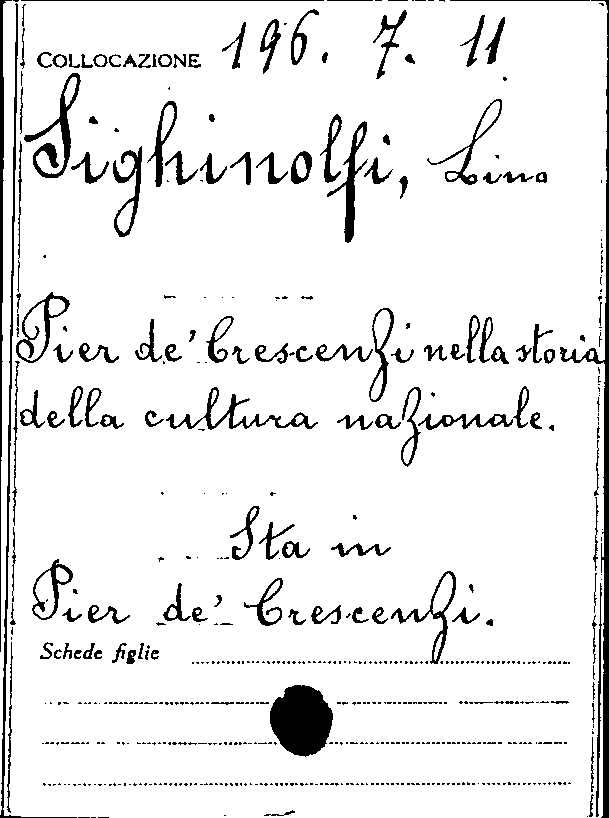 COLLOCAZIONE 196. 7. 11
Sighinolfi, Lino
Pier de' Crescenzi nella storia
della cultura nazionale.
Sta in
Pier de' Crescenzi.
Schede figlie